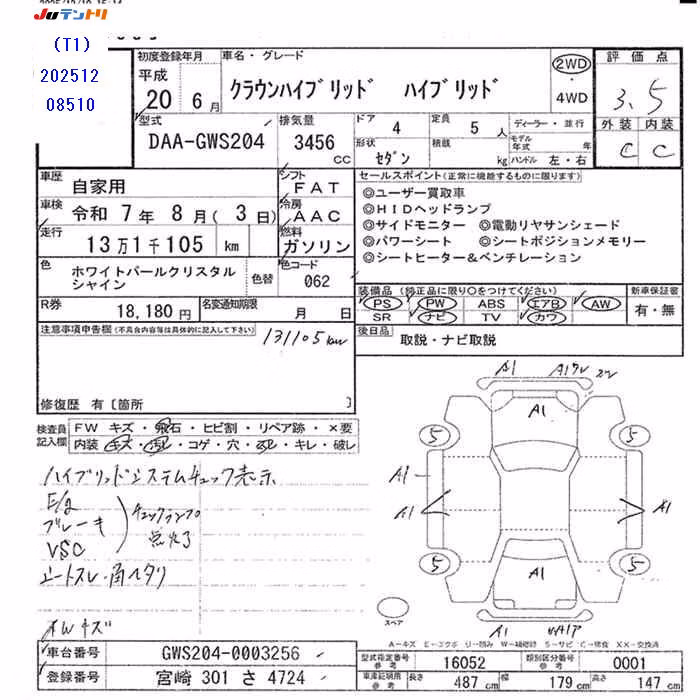 Juテントリ
(T1)
202512
08510
初度登録年月
平成
20 6月
車名・グレード
クラウンハイブリッド ハイブリッド
2WD
4WD
評価点
3.5
外装 内装
C C
型式
DAA-GWS204
排気量
3456
CC
ドア
4
定員
5 人
形状
セダン
積載
kg
ディーラー・並行
モデル年式 年
ハンドル 左・右
車歴
自家用
車検
令和 7年 8月( 3日)
走行
13万1千105 km
色
ホワイトパールクリスタル
シャイン
色替
シフト
FAT
冷房
AAC
燃料
ガソリン
色コード
062
R券
18,180 円
名変通知期限
月 日
セールスポイント(正常に機能するものに限ります)
◎ユーザー買取車
◎HIDヘッドランプ
◎サイドモニター ◎電動リヤサンシェード
◎パワーシート ◎シートポジションメモリー
◎シートヒーター&ベンチレーション
装備品(純正品に限り○をつけてください)
PS PW ABS エアB AW
SR ナビ TV カワ
新車保証書
有・無
後日品
取説・ナビ取説
注意事項申告欄(不具合内容等は具体的に記入して下さい)
131105km
修復歴 有〔箇所 〕
検査員
記入欄
FW キズ・飛石・ヒビ割・リペア跡・×要
内装 キズ・汚れ・コゲ・穴・スレ・キレ・破レ
ハイブリッドシステムチェック表示
E/g
ブレーキ
VSC
チェックランプ
点灯
シートスレ・角ヘタリ
AWキズ
A1
A1
A1
A1
A1
A1
A1
A1
5
5
5
5
スペア
A-キズ
XX-交換済
車台番号
GWS204-0003256
登録番号
宮崎 301 さ 4724
型式指定番号
参考
16052
類別区分番号
参考
0001
車庫証明用
参考
長さ 487 cm
幅 179 cm
高さ 147 cm